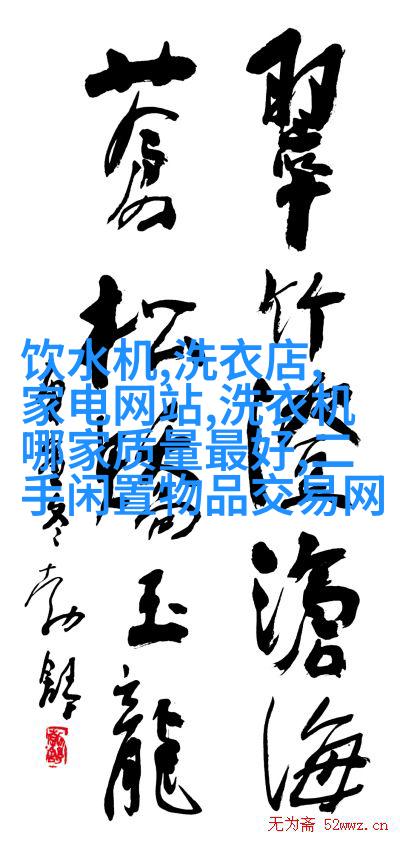 翠竹澄滄海
蒼松
玉龍
饮水机,洗衣店,
家电网站,洗衣机
哪家质量最好,二
手闲置物品交易网
无为斋 52wwz.cn